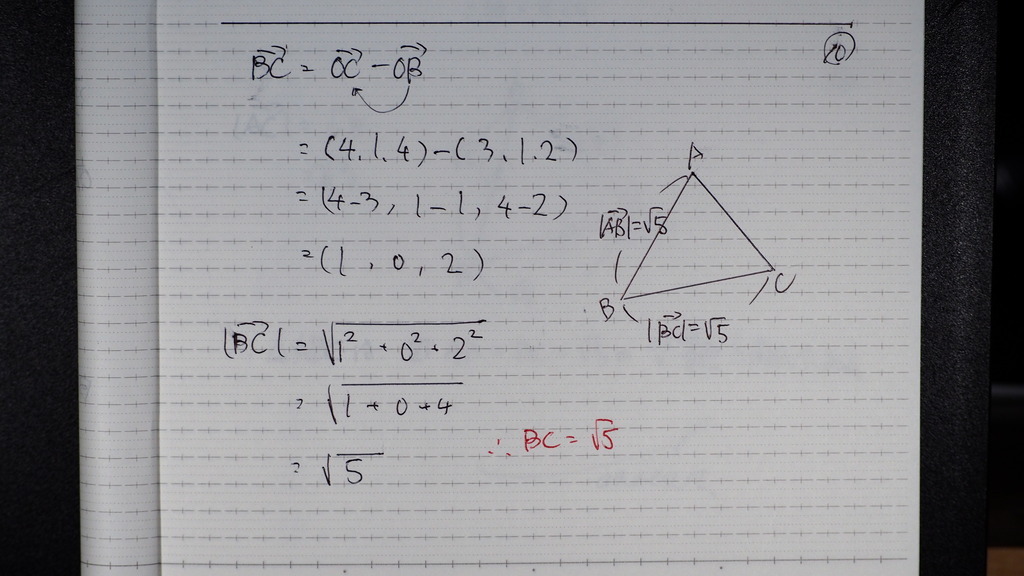 ⑳
BC⃗ = OC⃗ - OB⃗
= (4, 1, 4) - (3, 1, 2)
= (4-3, 1-1, 4-2)
= (1, 0, 2)
|BC⃗| = √(1² + 0² + 2²)
= √(1 + 0 + 4)
= √5
∴ BC = √5
A
|AB⃗| = √5
B
C
|BC⃗| = √5